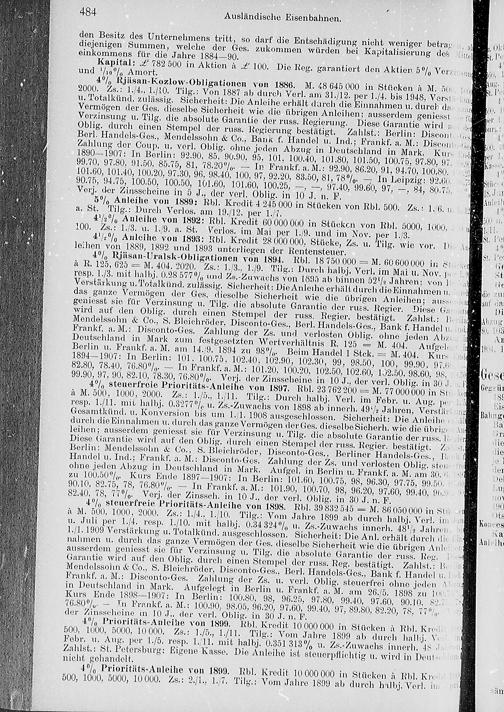 484
Ausländische Eisenbahnen.
den Besitz des Unternehmens tritt, so darf die Entschädigung nicht weniger
diejenigen Summen, welche der Ges. zukommen würden bei Kapitalisierung des
einkommens für die Jahre 1884—90.
Kapital: £ 782 500 in Aktien à £ 100. Die Reg. garantiert den Aktien 5%
und 1/10% Amort.
4% Rjäsan-Kozlow-Obligationen von 1886. M. 48 645 000 in Stücken à M.
2000. Zs.: 1./4., 1./10. Tilg.: Von 1887 ab durch Verl. am 31./12. per 1./4. bis 1948,
u. Totalkünd. zulässig. Sicherheit: Die Anleihe erhält durch die Einnahmen u. durch
Vermögen der Ges. dieselbe Sicherheit wie die übrigen Anleihen; ausserdem geniesst
Verzinsung u. Tilg. die absolute Garantie der russ. Regierung. Diese Garantie wird
Oblig. durch einen Stempel der russ. Regierung bestätigt. Zahlst.: Berlin:
Berl. Handels-Ges., Mendelssohn & Co., Bank f. Handel u. Ind.; Frankf. a. M.:
Zahlung der Coup. u. verl. Oblig. ohne jeden Abzug in Deutschland in Mark. Kurs
1890—1907: In Berlin: 92.90, 85, 90.90, 95, 101, 100.40, 101.80, 101.50, 100.75, 97.80,
99.70, 97.80, 91.50, 85.75, 81, 78.20%. — In Frankf. a. M.: 92.90, 86.20, 91, 94.70, 100.80,
101.60, 101.40, 100.20, 97.30, 96, 98.40, 100, 97, 92.20, 83.50, 81, 78%. — In Leipzig:
90.75, 94.75, 100.50, 100.50, 101.60, 101.60, 100.25, —, —, 97.40, 99.60, 97, —, 84, 80.75,
Verj. der Zinsscheine in 5 J., der verl. Oblig. in 10 J. n. F.
5% Anleihe von 1889: Rbl. Kredit 4 245 000 in Stücken von Rbl. 500. Zs.: 1./6.
a. St. Tilg.: Durch Verlos. am 19./12. per 1./7.
4 1/2% Anleihe von 1892: Rbl. Kredit 60 000 000 in Stücken von Rbl. 5000, 1000,
100. Zs.: 1./3. u. 1./9. a. St. Verlos. im Mai per 1./9. und im Nov. per 1./3.
4 1/2% Anleihe von 1893: Rbl. Kredit 28 000 000. Stücke, Zs. u. Tilg. wie vor.
leihen von 1889, 1892 und 1893 unterliegen der Rentensteuer.
4% Rjäsan-Uralsk-Obligationen von 1894. Rbl. 18 750 000 = M. 60 600 000 in
à R. 125, 625 = M. 404, 2020. Zs.: 1./3., 1./9. Tilg.: Durch halbj. Verl. im Mai u. Nov.
resp. 1./3. mit halbj. 0.28 577% und Zs.-Zuwachs von 1895 ab binnen
Verstärkung u. Totalkünd. zulässig. Sicherheit: Die Anleihe erhält durch die Einnahmen
das ganze Vermögen der Ges. dieselbe Sicherheit wie die übrigen Anleihen;
geniesst sie für Verzinsung u. Tilg. die absolute Garantie der russ. Regier. Diese
wird auf den Oblig. durch einen Stempel der russ. Regier. bestätigt. Zahlst.:
Mendelssohn & Co., S. Bleichröder, Disconto-Ges., Berl. Handels-Ges., Bank f. Handel
Frankf. a. M.: Disconto-Ges. Zahlung der Zs. und verlosten Oblig. ohne jeden
Deutschland in Mark zum festgesetzten Wertverhältnis R. 125 = M. 404.
Berlin u. Frankf. a. M. am 14./9. 1894 zu 98%. Beim Handel 1 Stck. = M. 404.
1894—1907: In Berlin: 101, 100.75, 102.40, 102.90, 102.30, 99, 98.50, 100, 99.90,
82.80, 78.40, 76.80%. — In Frankf. a. M.: 101.20, 100.20, 102.50, 102.60,
99.90, 97, 90, 82.10, 78.30, 76.80%. Verj. der Zinsscheine in 10 J., der verl. Oblig. in 30
4% steuerfreie Prioritäts-Anleihe von 1897. Rbl. 23 762 200 = M. 77 000 000 in
à M. 500, 1000, 2000. Zs.: 1./5., 1./11. Tilg.: Durch halbj. Verl. im Febr. u. Aug.
resp. 1./11. mit halbj. 0.3277% u. Zs.-Zuwachs von 1898 ab innerh. 49 1/2 Jahren,
Gesamtkünd. u. Konversion bis zum 1./1. 1908 ausgeschlossen. Sicherheit: Die Anleihe
durch die Einnahmen u. durch das ganze Vermögen der Ges. dieselbe Sicherh. wie die
leihen; ausserdem geniesst sie für Verzinsung u. Tilg. die absolute Garantie der russ.
Diese Garantie wird auf den Oblig. durch einen Stempel der russ. Regier. bestätigt.
Berlin: Mendelssohn & Co., S. Bleichröder, Disconto-Ges., Berliner Handels-Ges.,
Handel u. Ind.; Frankf. a. M.: Disconto-Ges. Zahlung der Zs. und verlosten Oblig.
ohne jeden Abzug in Deutschland in Mark. Aufgel. in Berlin u. Frankf. a. M. am
zu 100.50%. Kurs Ende 1897—1907: In Berlin: 101.60, 100.75, 98, 96.30, 97.75, 99.50,
90.10, 82.75, 78, 76.80%. — In Frankf. a. M.: 101.90, 100.70, 98, 96.20, 97.60, 99.40,
82.40, 78, 77%. Verj. der Zinssch. in 10 J., der verl. Oblig. in 30 J. n. F.
4% steuerfreie Prioritäts-Anleihe von 1898. Rbl. 39 832 545 = M. 86 050 000 in
à M. 500, 1000, 2000. Zs.: 1./4. 1./10. Tilg.: Vom Jahre 1899 ab durch halbj. Verl.
u. Juli per 1./4. resp. 1./10. mit halbj. 0.34 324% u. Zs.-Zuwachs innerh. 48 1/2 Jahren
1./1. 1909 Verstärkung u. Totalkünd. ausgeschlossen. Sicherheit: Die Anl. erhält durch
nahmen u. durch das ganze Vermögen der Ges. dieselbe Sicherheit wie die übrigen
ausserdem geniesst sie für Verzinsung u. Tilg. die absolute Garantie der russ. Reg.
Garantie wird auf den Oblig. durch einen Stempel der russ. Reg. bestätigt. Zahlst.:
Mendelssohn & Co., S. Bleichröder, Disconto-Ges., Berl. Handels-Ges., Bank f. Handel
Frankf. a. M.: Disconto-Ges. Zahlung der Zs. u. verl. Oblig. steuerfrei ohne jeden
in Deutschland in Mark. Aufgelegt in Berlin u. Frankf. a. M. am 26./5. 1898 zu
Kurs Ende 1898—1907: In Berlin: 100.80, 98, 96.25, 97.80, 99.40, 97.60, 90.10,
76.80%. — In Frankf. a. M.: 100.90, 98.05, 96.20, 97.60, 99.40, 97, 89.80, 82.20, 78,
der Zinsscheine in 10 J., der verl. Oblig. in 30 J. n. F.
4% Prioritäts-Anleihe von 1899. Rbl. Kredit 10 000 000 in Stücken à Rbl.
500, 1000, 5000, 10 000. Zs.: 1./5., 1./11. Tilg.: Vom Jahre 1899 ab durch halbj.
Febr. u. Aug. per 1./5. resp. 1./11. mit halbj. 0.351 313% u. Zs.-Zuwachs innerh. 48
Zahlst.: St. Petersburg: Eigene Kasse. Die Anleihe ist steuerpflichtig u. wird in
nicht gehandelt.
4% Prioritäts-Anleihe von 1899. Rbl. Kredit 10 000 000 in Stücken à Rbl.
500, 1000, 5000, 10 000. Zs.: 2./1., 1./7. Tilg.: Vom Jahre 1899 ab durch halbj. Verl.